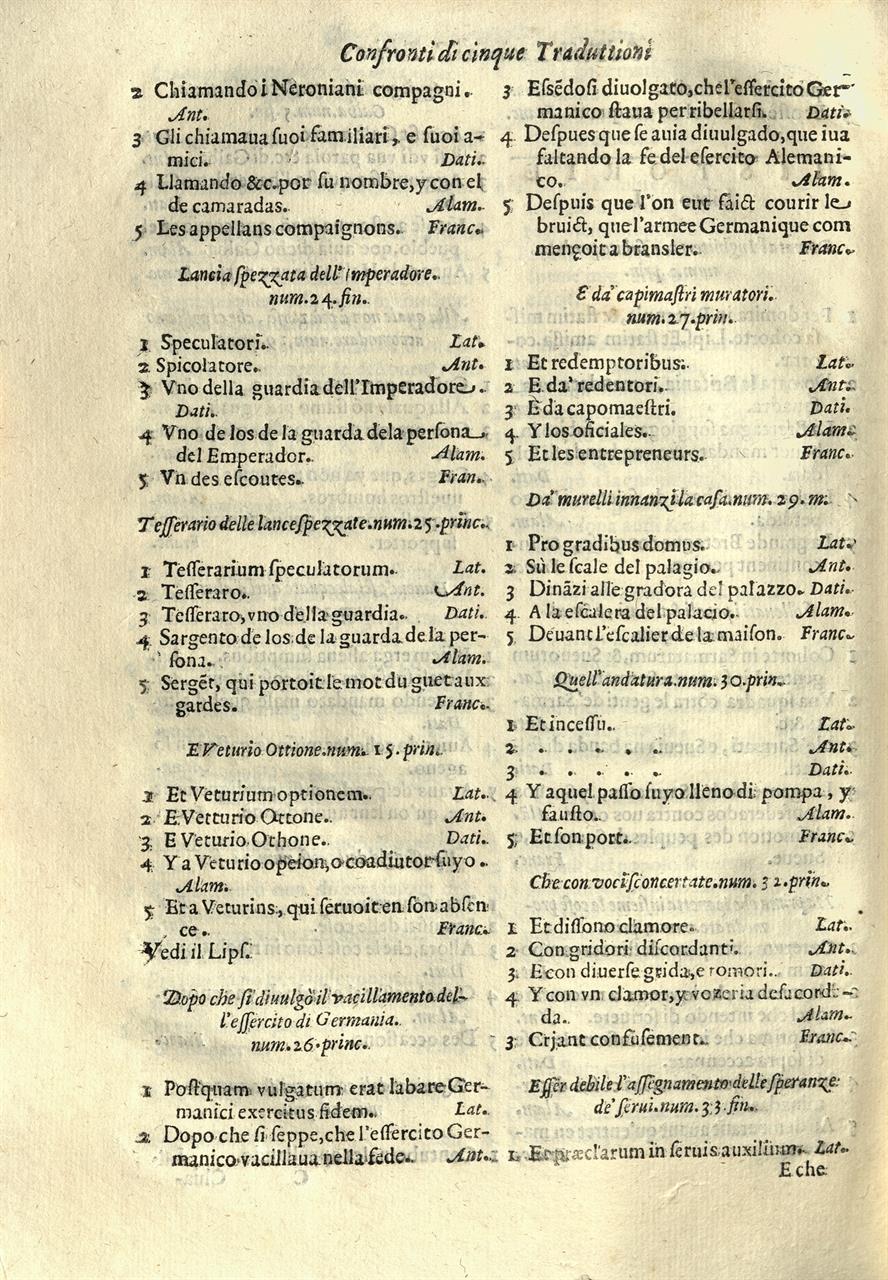 Confronti di cinque Traduttioni
2 Chiamando i Neroniani compagni.
Ant.
3 Gli chiamaua suoi familiari, e suoi a-
mici. Dati.
4 Llamando &c. por su nombre, y con el
de camaradas. Alam.
5 Les appellans compaignons. Franc.
Lancia spezzata dell'Imperadore.
num. 24. fin.
1 Speculatori. Lat.
2 Spicolatore. Ant.
3 Vno della guardia dell'Imperadore.
Dati.
4 Vno de los de la guarda dela persona
del Emperador. Alam.
5 Vn des escoutes. Fran.
Tesserario delle lancespezzate.num.25.princ.
1 Tesserarium speculatorum. Lat.
2 Tesseraro. Ant.
3 Tesseraro, vno della guardia. Dati.
4 Sargento de los de la guarda de la per-
sona. Alam.
5 Sergēt, qui portoit le mot du guet aux
gardes. Franc.
E Veturio Ottione.num. 15. prin.
1 Et Veturium optionem. Lat.
2 E Vetturio Ottone. Ant.
3 E Veturio Othone. Dati.
4 Y a Veturio opcion, o coadiutor suyo.
Alam.
5 Et a Veturins, qui seruoit en son absen
ce. Franc.
Vedi il Lips.
Dopo che si diuulgò il vacillamento del-
l'essercito di Germania.
num.26.princ.
1 Postquam vulgatum erat labare Ger-
manici exercitus fidem. Lat.
2 Dopo che si seppe, che l'essercito Ger-
manico vacillaua nella fede. Ant.
3 Essēdosi diuolgato, che l'essercito Ger-
manico staua per ribellarsi. Dati.
4 Despues que se auia diuulgado, que iua
faltando la fe del esercito Alemani-
co. Alam.
5 Despuis que l'on eut faict courir le
bruict, que l'armee Germanique com
mençoit a bransler. Franc.
E da' capimastri muratori.
num.27.prin.
1 Et redemptoribus. Lat.
2 E da' redentori. Ant.
3 E da capomaestri. Dati.
4 Y los oficiales. Alam.
5 Et les entrepreneurs. Franc.
Da' murelli innanzi la casa.num. 29. m.
1 Pro gradibus domus. Lat.
2 Sù le scale del palagio. Ant.
3 Dināzi alle gradora del palazzo. Dati.
4 A la escalera del palacio. Alam.
5 Deuant l'escalier de la maison. Franc.
Quell'andatura.num.30.prin.
1 Et incessu. Lat.
2 . . . . . Ant.
3 . . . . . Dati.
4 Y aquel passo suyo lleno di pompa, y
fausto. Alam.
5 Et son port. Franc.
Che con voci sconcertate.num. 32.prin.
1 Et dissono clamore. Lat.
2 Con gridori discordanti. Ant.
3 E con diuerse grida, e romori. Dati.
4 Y con vn clamor, y vozeria desacord-
da. Alam.
3 Crjant confusement. Franc.
Esser debile l'assegnamento delle speranze
de' serui.num.33.fin.
1 Et præclarum in seruis auxilium. Lat.
E che